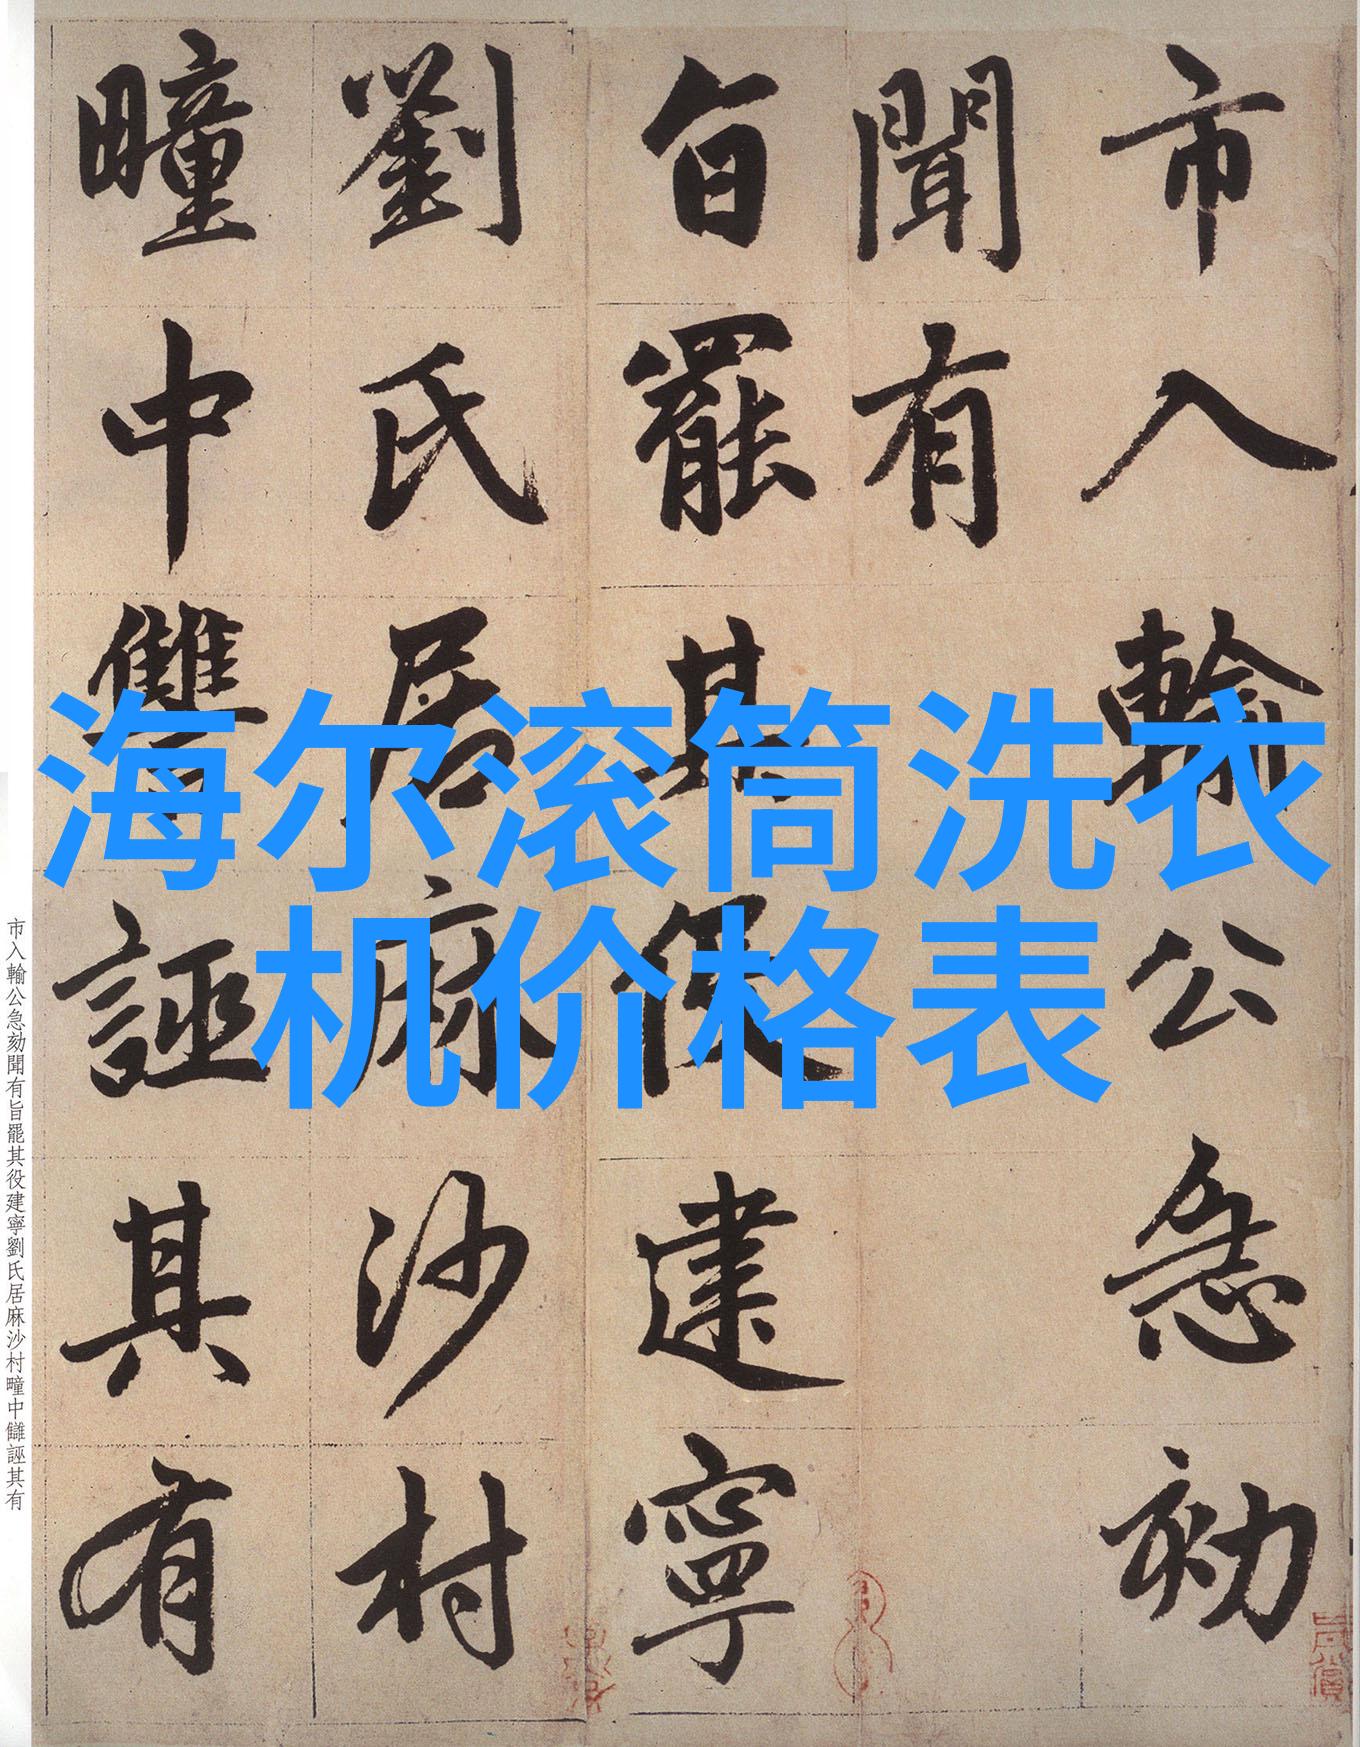 市入輸公急劾
聞有
旨罷其役建寧
劉氏居麻沙村
疃中讎誣其有
海尔滚筒洗衣
机价格表
市入輸公急劾聞有旨罷其役建寧劉氏居麻沙村疃中讎誣其有